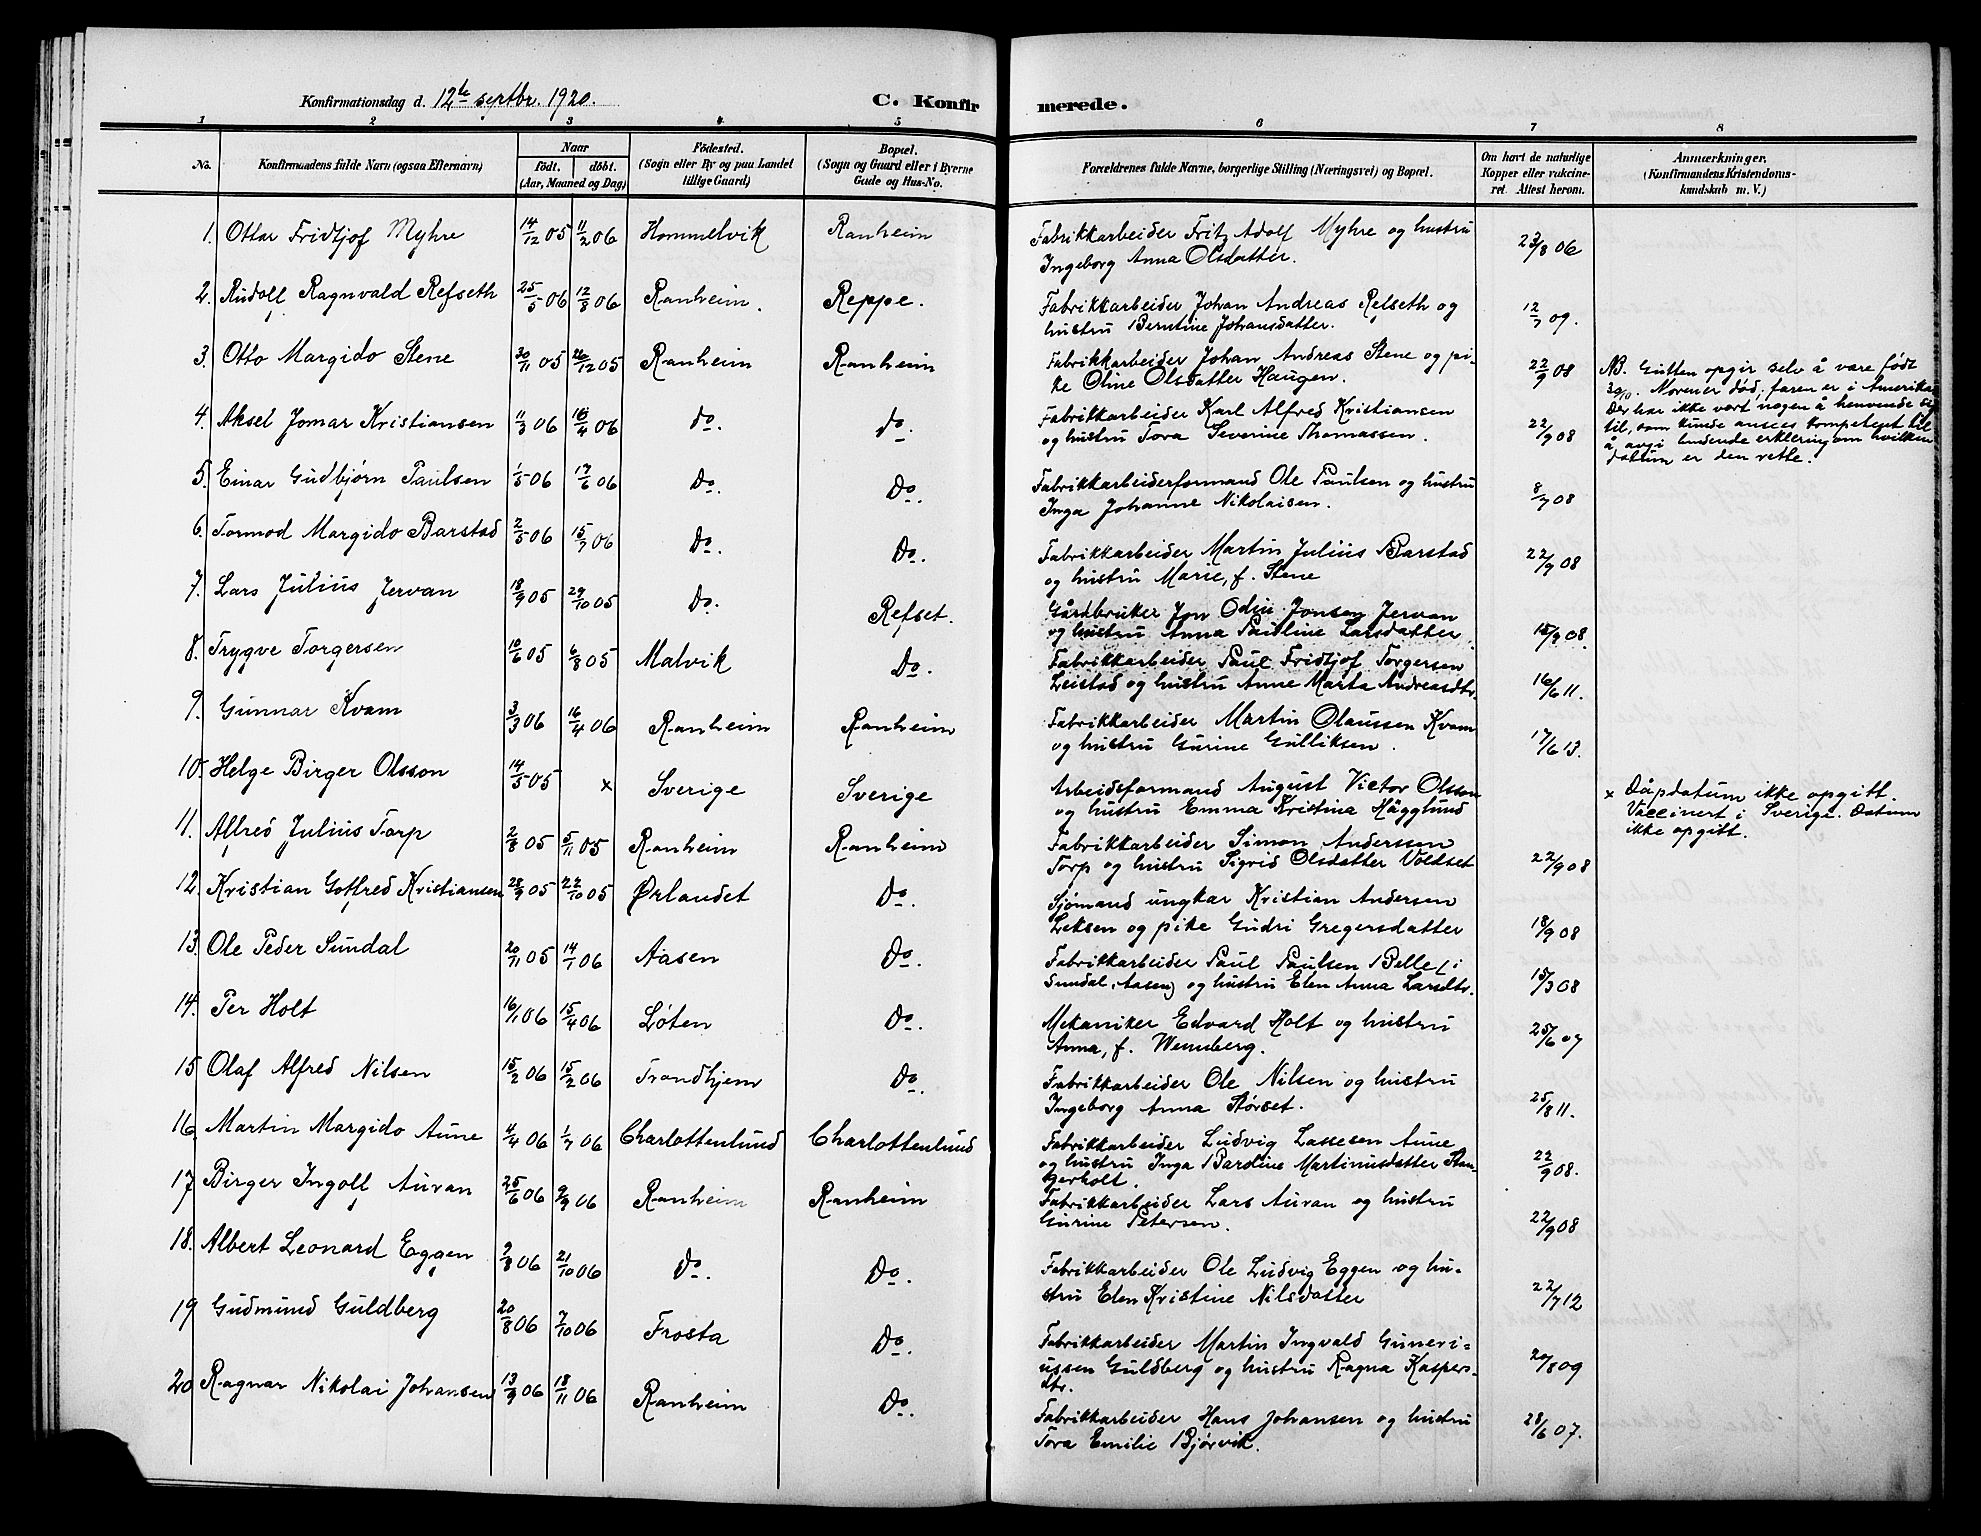 Konfirmationsdag d. 12te septbr. 1920.
C. Konfirmerede.
1 2 3 4 5 6 7 8
No.
Konfirmandens fulde Navn (ogsaa Efternavn)
Naar
födt. döbt.
(Aar, Maaned og Dag)
Födested.
(Sogn eller By og paa Landet
tillige Gaard)
Bopæl.
(Sogn og Gaard eller i Byerne
Gade og Hus-No.
Forældrenes fulde Navne, borgerlige Stilling (Næringsvei) og Bopæl.
Om havt de naturlige
Kopper eller vakcine-
ret. Attest herom.
Anmærkninger.
(Konfirmandens Kristendoms-
kundskab m. V.)
1. Ottar Fridtjof Myhre 14/12 05 11/2 06 Hommelvik Ranheim Fabrikkarbeider Fritz Adolf Myhre og hustru
Ingeborg Anna Olsdatter. 23/8 06
2. Rudolf Ragnvald Refseth 25/5 06 12/8 06 Ranheim. Reppe. Fabrikkarbeider Johan Andreas Refseth og
hustru Berntine Johansdatter. 12/7 09.
3. Otto Margido Stene 30/11 05 26/12 05 Ranheim Ranheim Fabrikkarbeider Johan Andreas Stene og pi-
ke Oline Olsdatter Haugen. 22/9 08
NB. Gutten opgir selv å være født
30/10. Moren er død; faren er i Amerika.
Der har ikke vært nogen å henvende sig
til, som kunde ansees kompetent til
å avgi bindende erklering om hvilken
datum er den rette.
4. Aksel Jomar Kristiansen 11/3 06 16/4 06 Do. Do. Fabrikkarbeider Karl Alfred Kristiansen
og hustru Tora Severine Thomassen. 22/9 08
5. Einar Gudbjørn Paulsen 1/5 06 17/6 06 Do. Do. Fabrikkarbeiderformand Ole Paulsen og hustru
Inga Johanne Nikolaisen. 8/7 08
6. Tormod Margido Barstad 2/5 06 15/7 06 Do. Do. Fabrikkarbeider Martin Julius Barstad
og hustru Marie, f. Stene 22/9 08
7. Lars Julius Jervan 18/9 05 29/10 05 Do. Refset. Gårdbruker Jon Odin Jonsen Jervan
og hustru Anna Pauline Larsdatter. 15/9 08.
8. Trygve Torgersen 10/6 05 6/8 05 Malvik Do. Fabrikkarbeider Paul Fridtjof Torgersen
Leistad og hustru Anne Marta Andreasdtr. 16/6 11.
9. Gunnar Kvam 3/3 06 16/4 06 Ranheim Ranheim Fabrikkarbeider Martin Olaussen Kvam
og hustru Gurine Gulliksen. 17/6 13.
10. Helge Birger Olsson 14/5 05 x Sverige Sverige Arbeidsformand August Victor Olsson
og hustru Emma Kristina Hägglund
x Dåpdatum ikke opgitt.
Vaccinert i Sverige. Datum
ikke opgitt.
11. Alfred Julius Torp 2/8 05 5/11 05 Ranheim Ranheim Fabrikkarbeider Simon Anderssen
Torp og hustru Sigrid Olsdatter Voldset 22/9 08
12. Kristian Gotfred Kristiansen 28/9 05 22/10 05 Ørlandet Do. Sjømand ungkar Kristian Andersen
Leksen og pike Gudri Gregersdatter 18/9 08
13. Ole Peder Sundal 20/11 05 14/1 06 Aasen Do. Fabrikkarbeider Paul Paulsen Belle (i
Sundal, Aasen) og hustru Elen Anna Larsdtr. 15/3 08
14. Per Holt 16/1 06 15/4 06 Løten Do. Mekaniker Edvard Holt og hustru
Anna, f. Wennberg. 25/6 07
15 Olaf Alfred Nilsen 15/2 06 15/2 06 Trondhjem Do. Fabrikkarbeider Ole Nilsen og hustru
Ingeborg Anna Størset. 25/8 11.
16. Martin Margido Aune 4/4 06 1/7 06 Charlottenlund Charlottenlund Fabrikkarbeider Ludvig Lassesen Aune
og hustru Inga Bardine Martinusdatter Stan-
gerholt. 22/9 08.
17 Birger Ingolf Auran 25/6 06 9/9 06 Ranheim Ranheim Fabrikkarbeider Lars Auran og hustru
Gurine Petersen. 22/9 08
18. Albert Leonard Eggen 9/8 06 21/10 06 Do. Do. Fabrikkarbeider Ole Ludvig Eggen og hu-
stru Elen Kristine Nilsdatter 22/7 12
19 Gudmund Guldberg 20/8 06 7/10 06 Frosta Do. Fabrikkarbeider Martin Ingvald Guneri-
ussen Guldberg og hustru Ragna Kaspers-
dtr. 20/8 09
20 Ragnar Nikolai Johansen 13/9 06 18/11 06 Ranheim Do. Fabrikkarbeider Hans Johansen og hustru
Tora Emilie Bjørvik. 28/6 07.